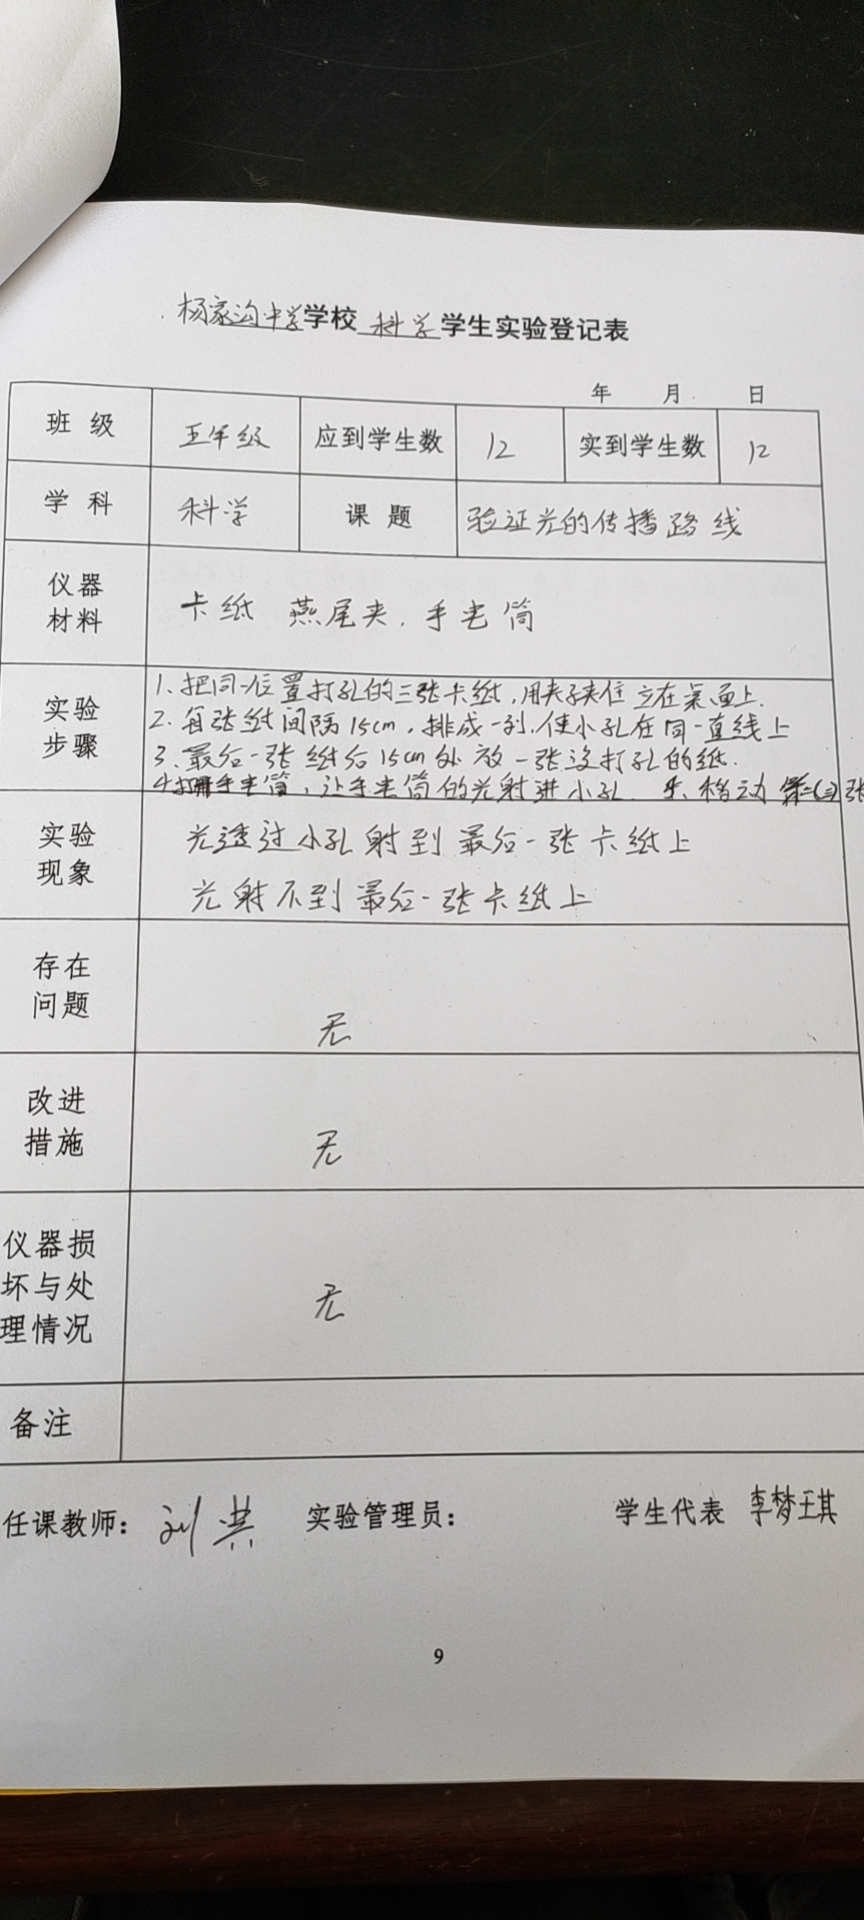 杨家沟中学学校 科学 学生实验登记表
年 月 日
班级 五年级 应到学生数 12 实到学生数 12
学科 科学 课题 验证光的传播路线
仪器
材料
卡纸 燕尾夹. 手电筒
实验
步骤
1、把同一位置打孔的三张卡纸,用夹子夹住立在桌面上.
2、每张纸间隔15cm,排成一列,使小孔在同一直线上
3、最后一张纸后15cm处放一张没打孔的纸.
4.打开手电筒,让手电筒的光射进小孔. 5.移动第二(三)张
实验
现象
光透过小孔射到最后一张卡纸上
光射不到最后一张卡纸上
存在
问题
无
改进
措施
无
仪器损
坏与处
理情况
无
备注
任课教师: 刘 实验管理员: 学生代表 李梦王其
9